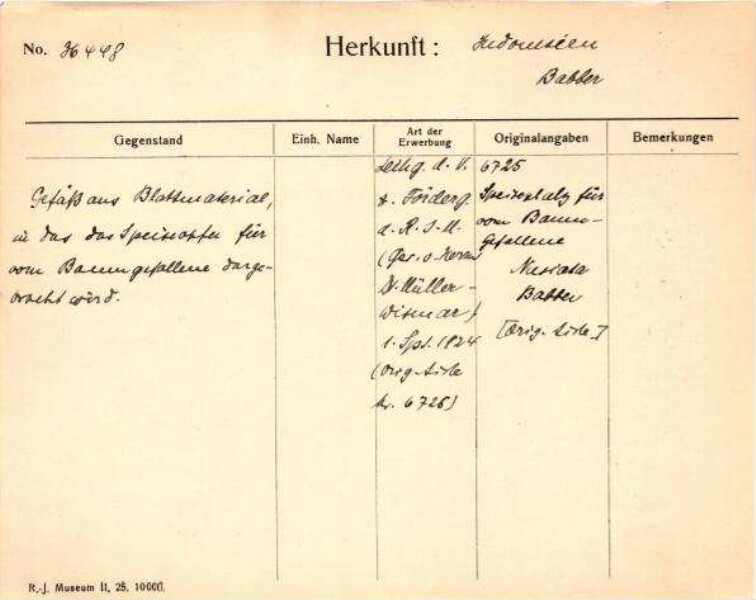 No. 36448
Herkunft: Indonesien
Babber
Gegenstand
Einh. Name
Art der Erwerbung
Originalangaben
Bemerkungen
Gefäß aus Blattmaterial,
in das das Speiseopfer für
vom Baum gefallene darge-
bracht wird.
Leihg. d. V.
z. Förderg.
d. R.-J.-M.
(Ges. v. Herrn
Dr. Müller-
Wismar)
1. Spt. 1924
(Orig. Liste
Nr. 6725)
6725
für
vom Baum-
Gefallene
Babber
[Orig. Liste]
R.-J. Museum II, 25. 10000.